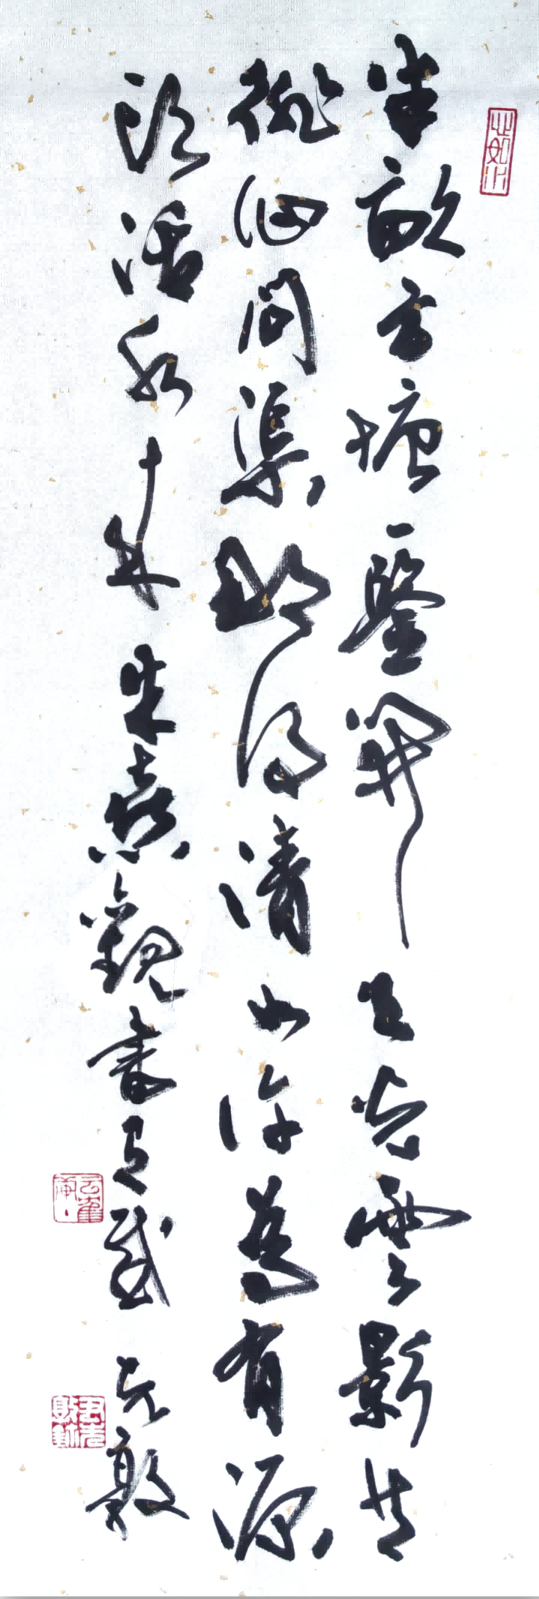 半畝方塘一鑒開天光雲影共
徘徊問渠那得清如許為有源
頭活水來朱熹觀書有感